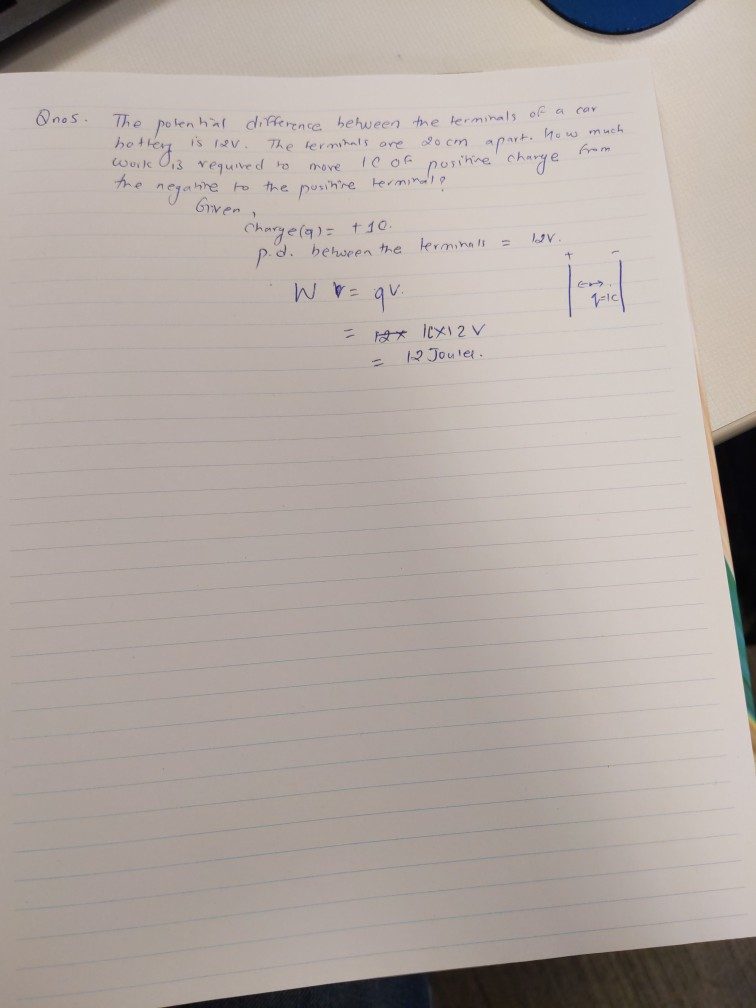 Qno5. The potential difference between the terminals of a car
battery is 12V. The terminals are 20cm apart. How much
work is required to move 1C of positive charge from
the negative to the positive terminal?
Given,
Charge(q) = +1C.
p.d. between the terminals = 12V.
W = qV.
= 1C×12V
= 12 Joules.
+ -
q=1C